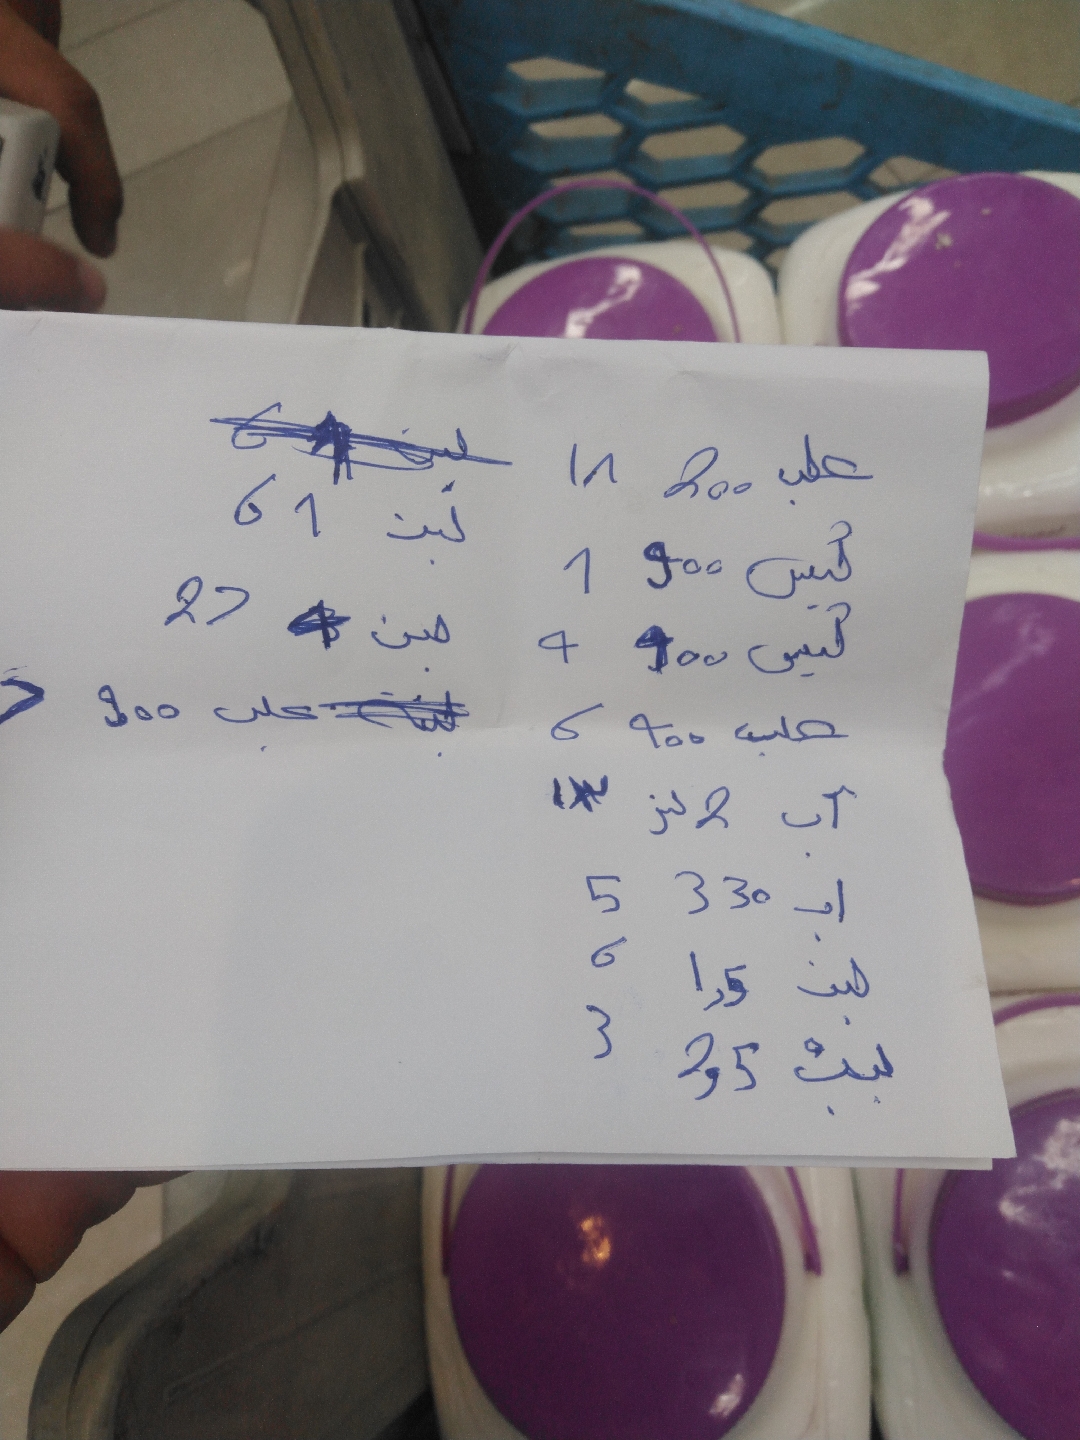 علب 200 ١٨
كيس 900 1
كيس 400 4
علب 400 6
آب 2 لتر
اب 330 5
جبن 1,5 6
لبن 2,5 3
لبن 1 6
جبن 27
علب 900